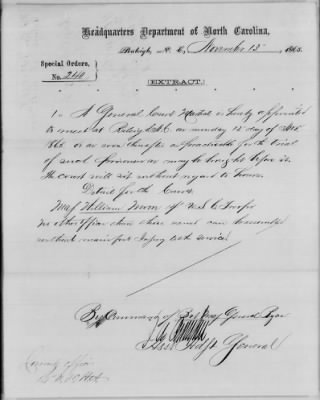 Headquarters Department of North Carolina,
Raleigh, N. C., November 13 1865.
Special Orders,
No. 240
EXTRACT.
1. A General Court Martial is hereby appointed
to meet at Raleigh N.C. on Monday
1865 or as soon thereafter as practicable for the trial
of such prisoners as may be brought before it.
The court will sit without regard to hours.
Detail for the Court
Maj William
No other officers than those named can be assembled
without manifest injury to the service.
By Command of Bvt Maj General Ruger
Asst Adjt General